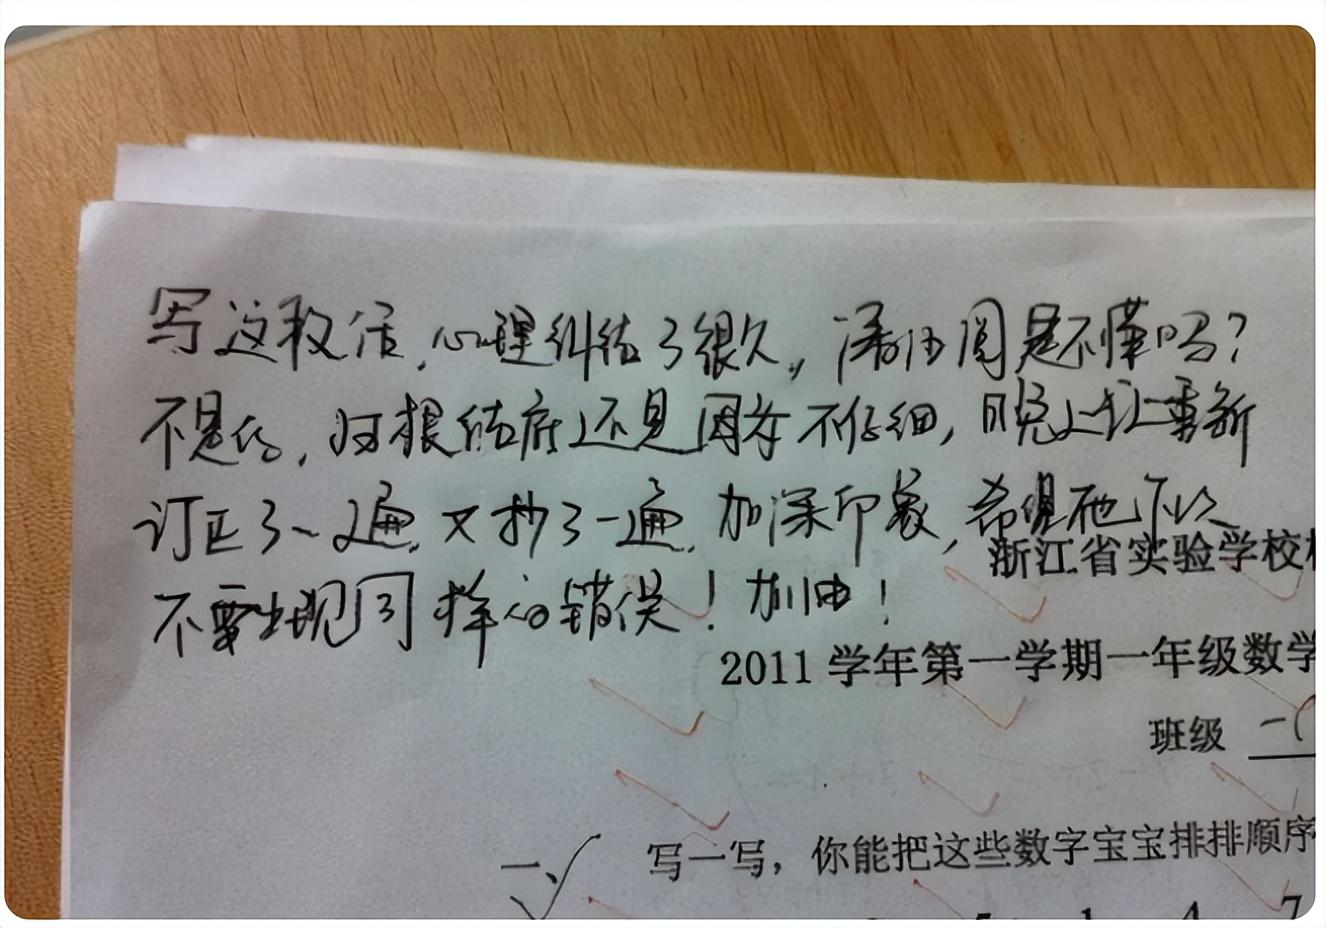 写这段话,心理纠结了很久,潘 周是不懂吗?
不是的,归根结底还是因为不仔细,晚上让重新
订正了一遍,又抄了一遍,加深印象,希望他下次
不要出现同样的错误!加油!
浙江省实验学校
2011 学年第一学期一年级数学
班级 一(
一、 写一写,你能把这些数字宝宝排排顺序
5 1 4 7